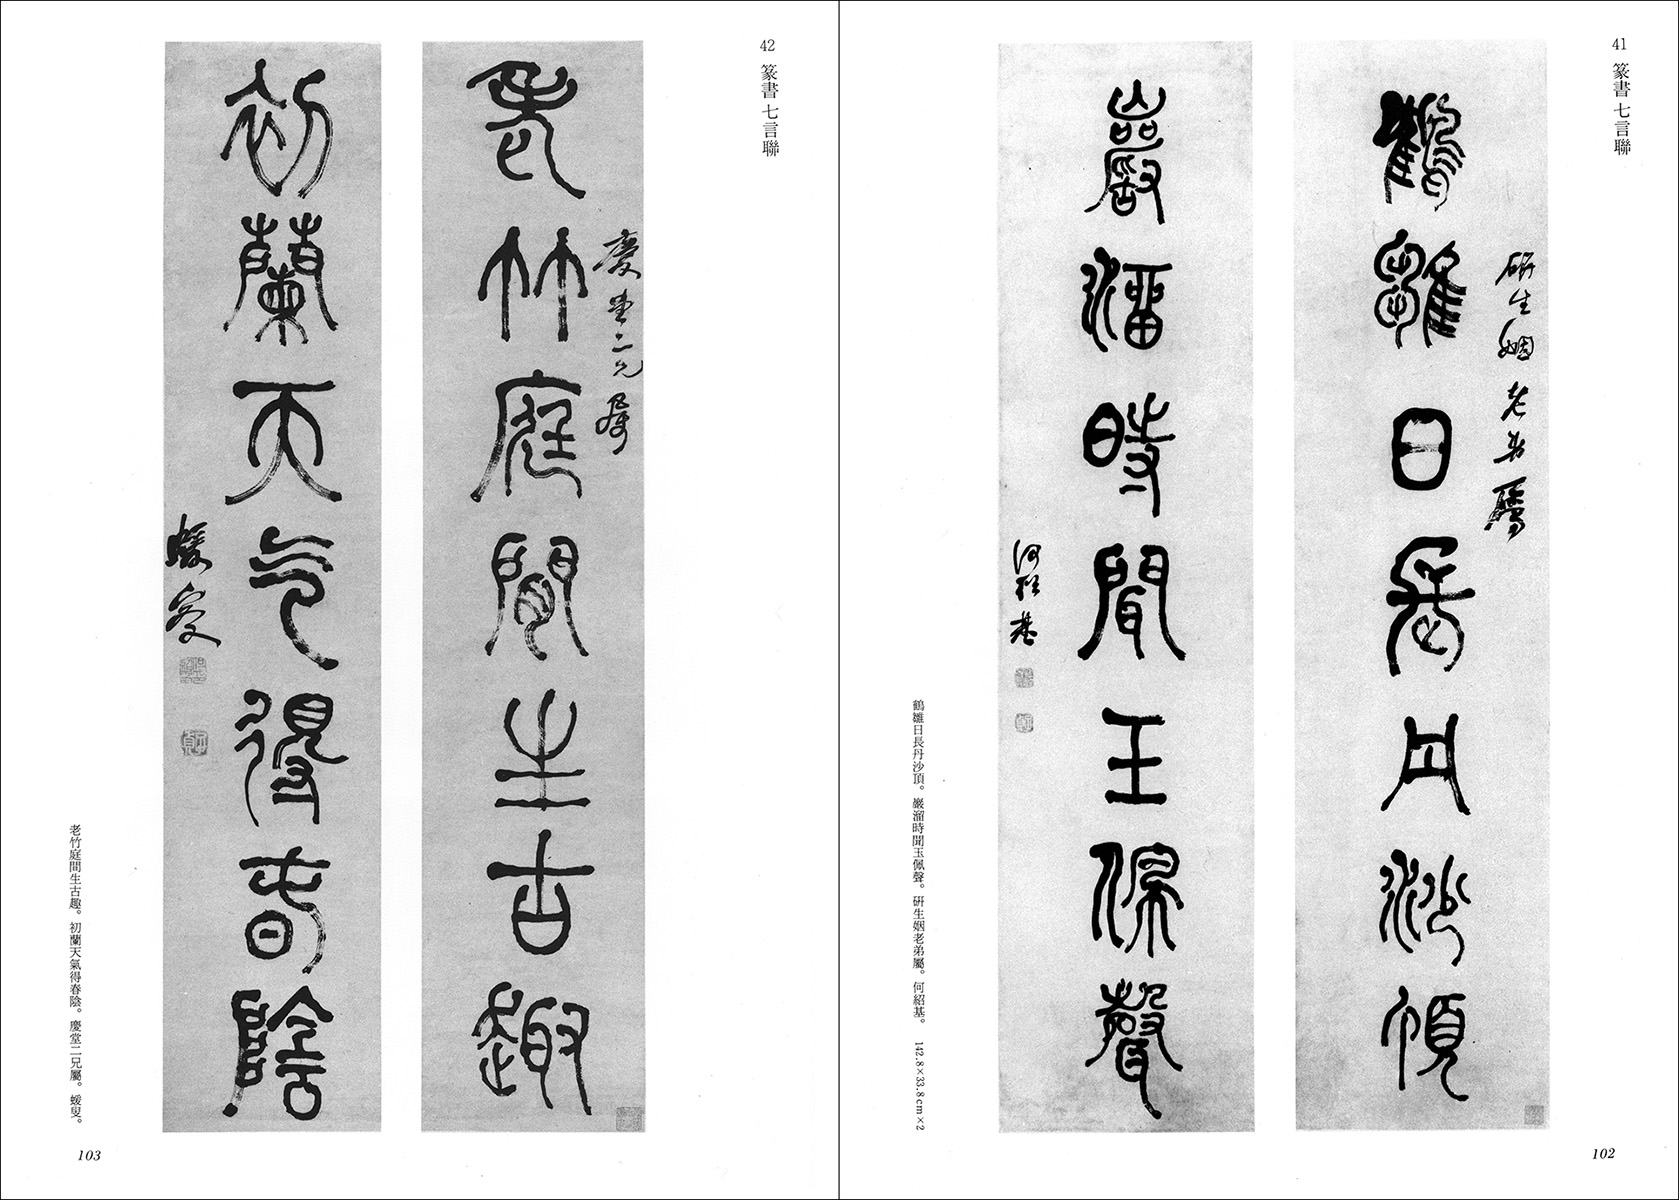 41 篆書七言聯
鶴雛日長丹沙頂
硏生姻老弟屬
巖溜時聞玉佩聲
何紹基
鶴雛日長丹沙頂。巖溜時聞玉佩聲。硏生姻老弟屬。何紹基。 142.8×33.8cm×2
102
42 篆書七言聯
老竹庭間生古趣
慶堂二兄屬
初蘭天氣得春陰
蝯叟
老竹庭間生古趣。初蘭天氣得春陰。慶堂二兄屬。蝯叟。
103